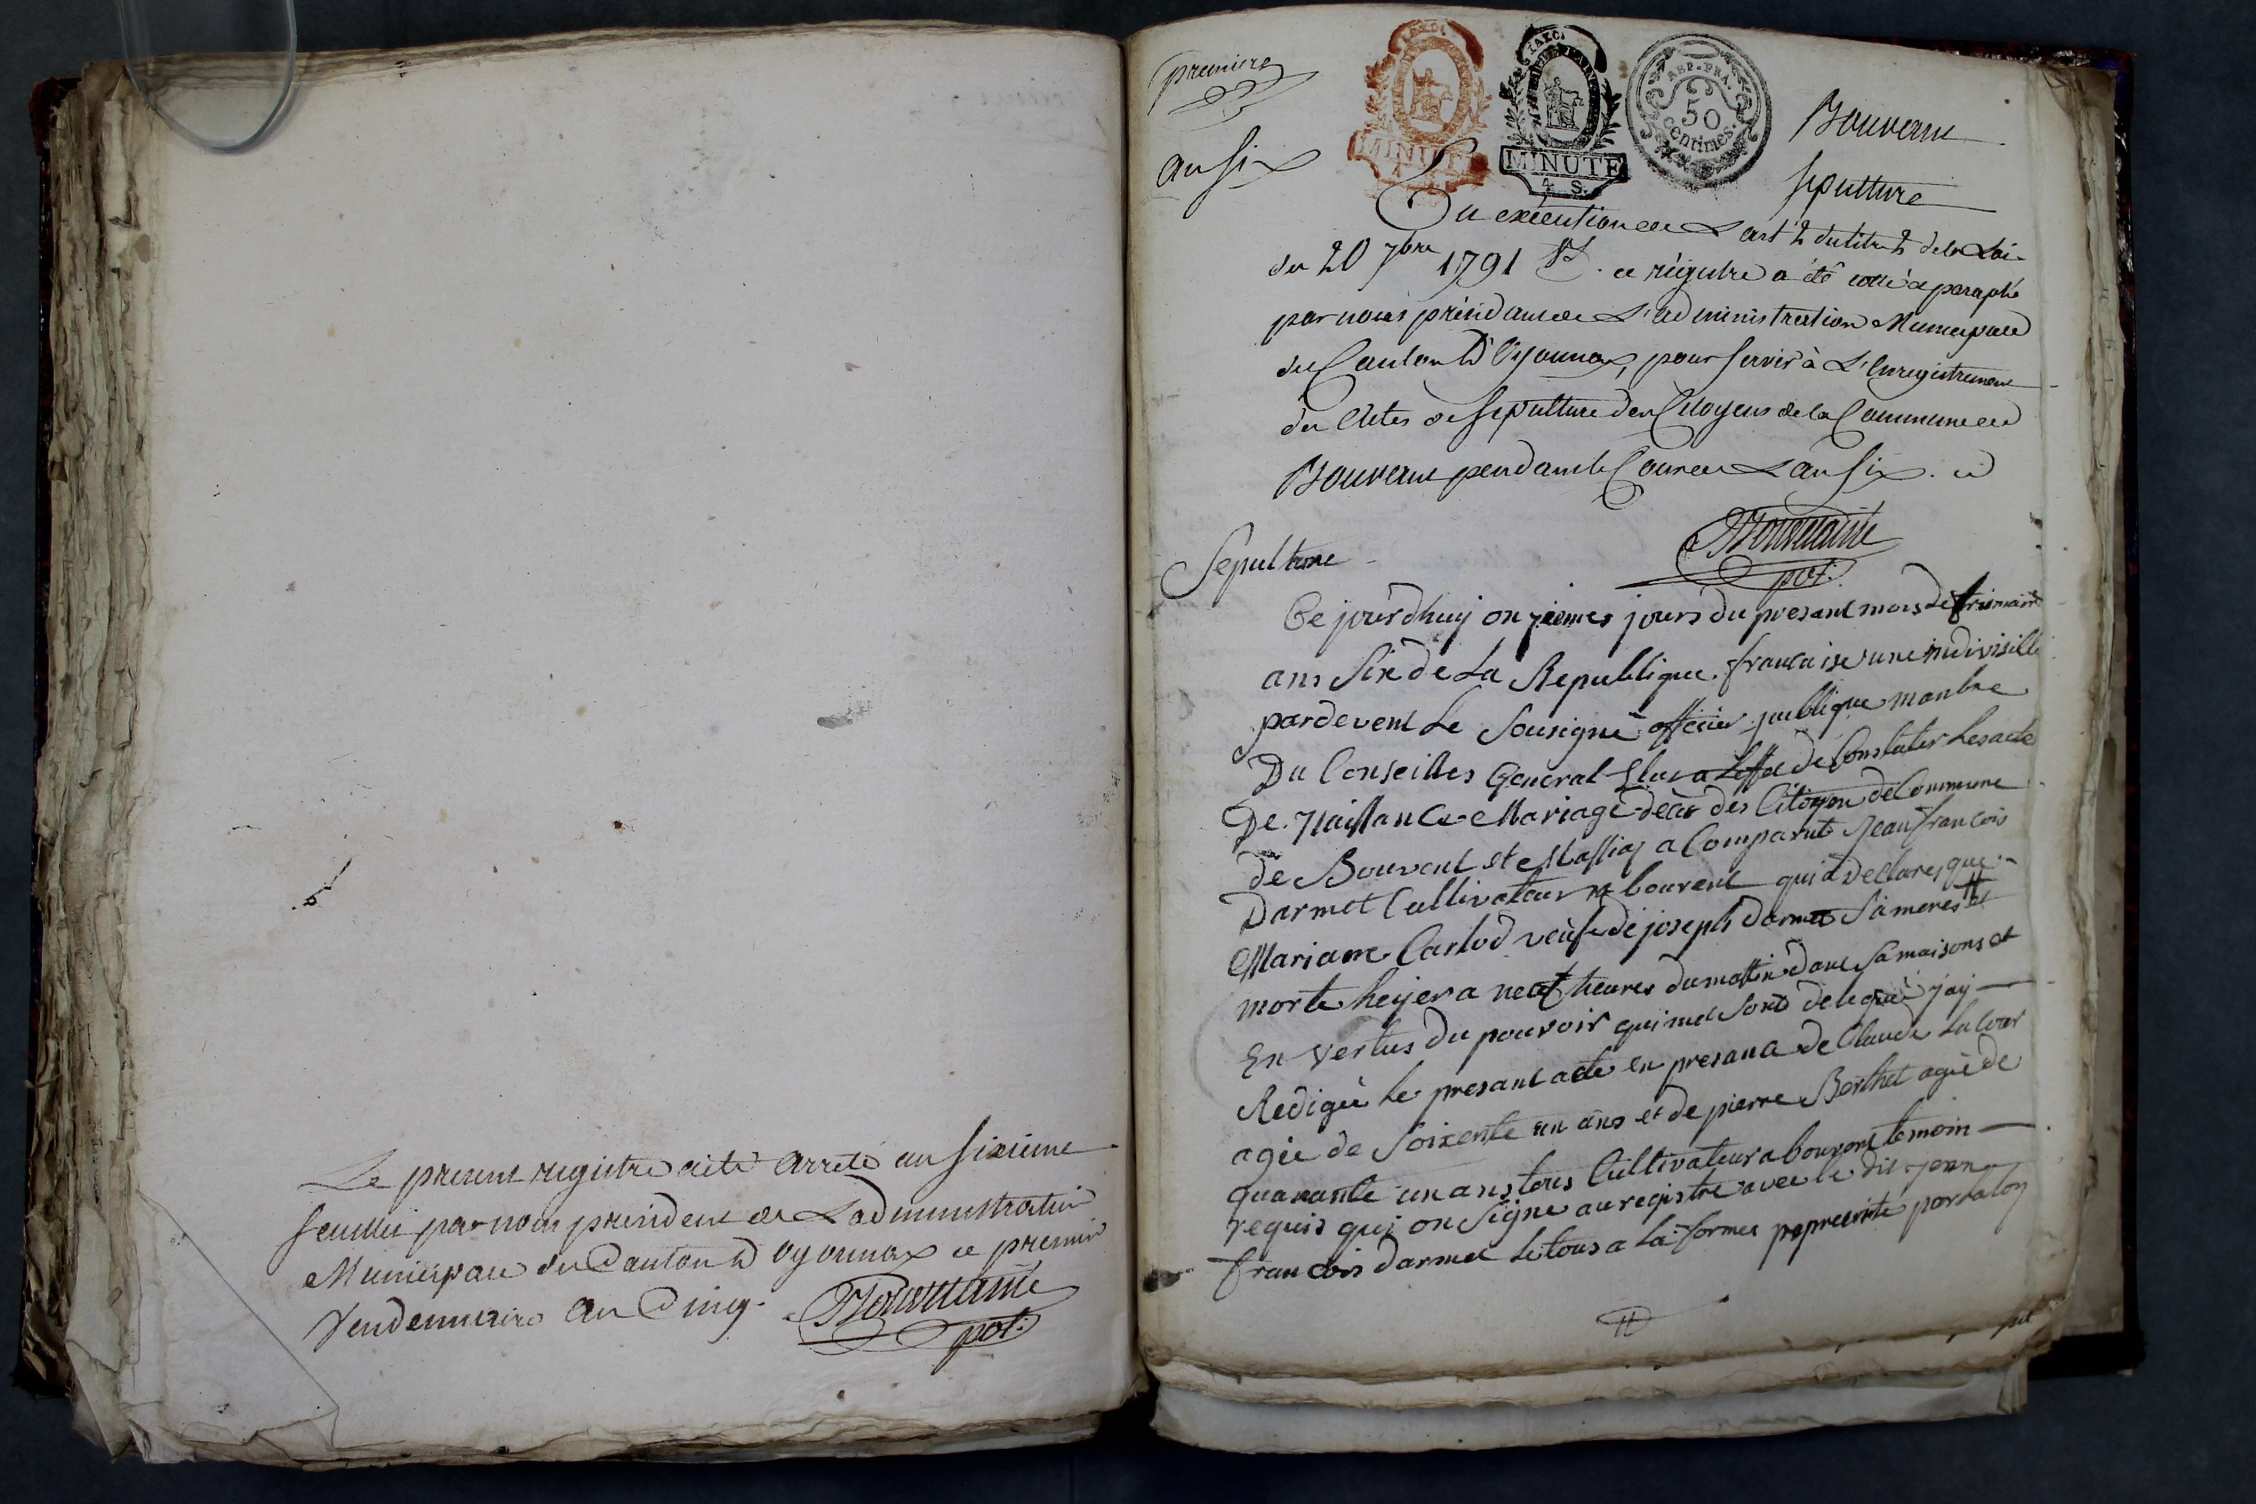 Le present registre a été arreté au sixieme
feuillet par nous president de L'administration
Municipale du Canton d'Oyonnax ce premier
Vendemiaire an Cinq.
pdt.
premiere
an six
MINUTE
MINUTE
4. S.
REP. FRA.
50
centimes.
Bouvent
sepulture
En execution de L'art 2 du titre 2 de la Loi
du 20 7bre 1791 ce régistre a été cotté et paraphé
par nous président de L'administration Municipale
du Canton d'Oyonnax, pour servir à L'Enregistrement
des Actes de sepulture des Citoyens de la Commune de
Bouvent pendant le Cours de L'an six.
pdt.
Sepulture
Ce jourdhuy onziemes jours du presant mois de frimaire
ans Six de La Republique francaise une indivisille
pardevent Le Sousigné officier publique manbre
Du Conseilles General Elus a Leffet de Constater Les acte
De Naissance Mariage deces des Citoyen de Commune
de Bouvent et Massiaz a Comparut Jean francois
Darmet Cultivateur a bouvent qui a Declares que
Mariane Carlod veufe de joseph darmet sa meres et
morte heyer a neuf heures du mattin dans sa maisons et
En Vertus Du pouvoir qui met sont delegué jay
Redigéé Le presant acte en presana de Claude La Cour
agéé de Soixente un ans et de pierre Berthet agéé de
quarante un ans tous Cultivateur a bouvent temoin
requis qui on Signe au registre avec le dit jean
francois darmet le tous a la formes prepreerite par la loy